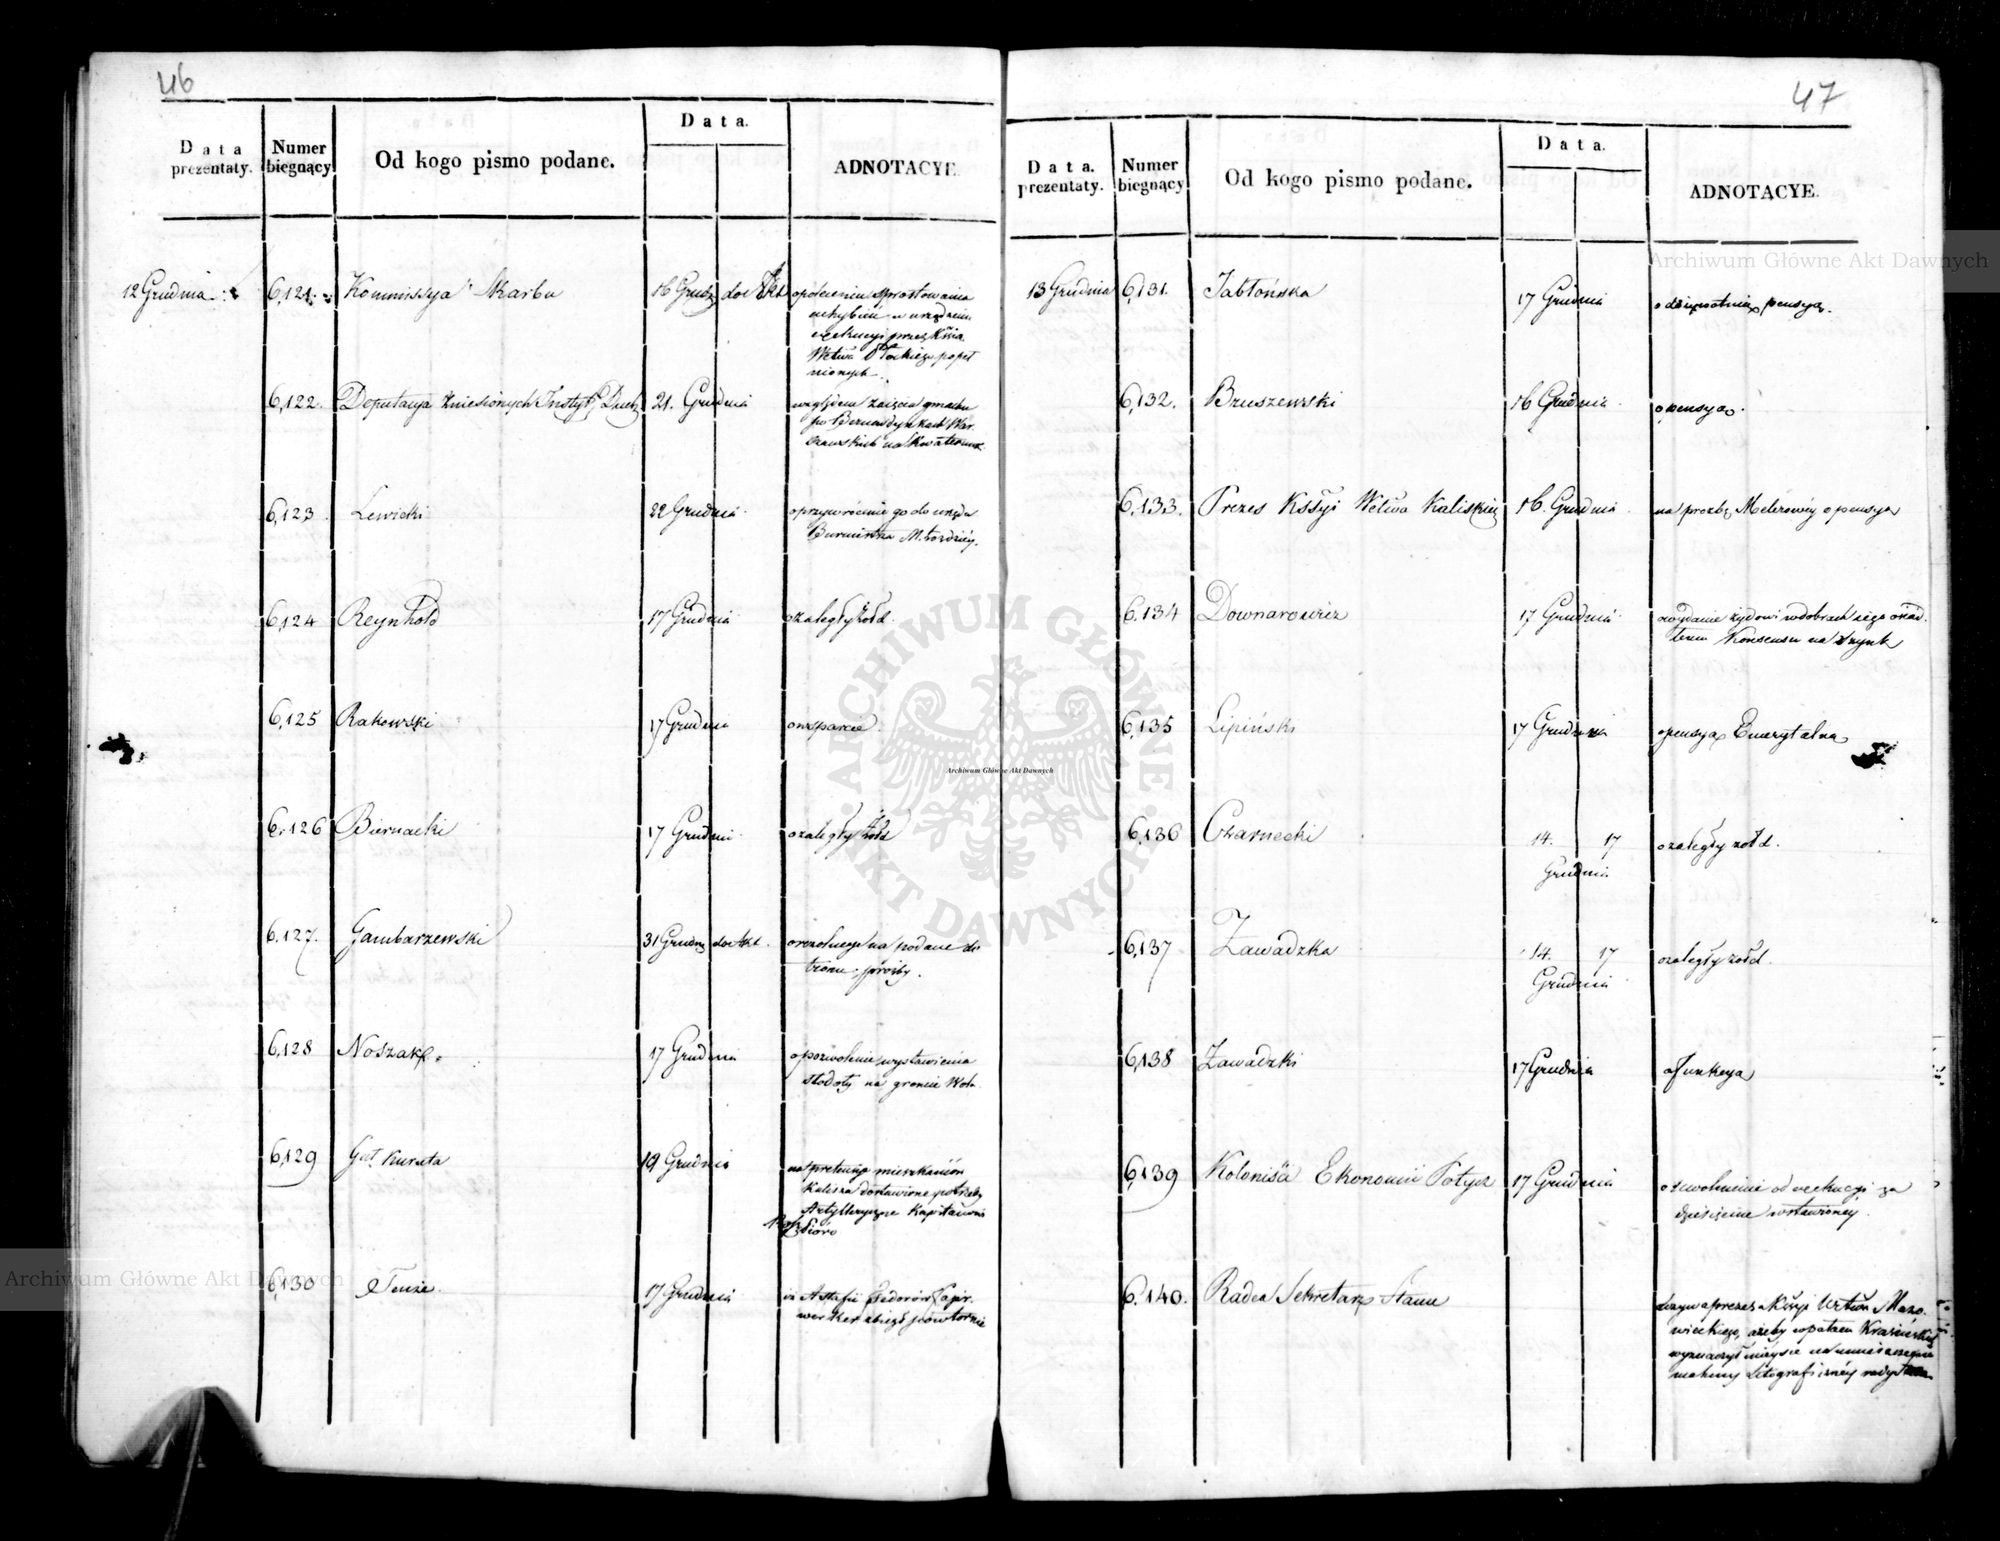 46
Data prezentaty.
Numer biegnący
Od kogo pismo podane.
Data.
ADNOTACYE.
12 Grudnia
6,121.
Kommissya Skarbu
16 Grudz do Akt
o polecenie sprostowania
uchybień w urządzeniu
exekucyi przez
Płockiego popeł
nionych.
6,122.
Deputacya Zniesionych Instyt. Duch
21. Grudnia
względem zajęcia gmachu
po Bernardynkach War
szawskich na Kwaterunek
6,123
Lewicki
22 Grudnia
o przywrócenie go do urzędu
Burmistrza
6,124
Reynhold
17 Grudnia
o zaległy żołd.
6,125
Rakowski
17 Grudnia
o wsparcie.
6,126
Biernacki
17 Grudnia
o zaległy żołd
6,127.
Gambarzewski
31 Grudnia do Akt.
o rezolucyę na podane do
tronu prośby.
6,128
Noszak
17 Grudnia
o pozwolenie wystawienia
stodoły na groncie
6,129
Gał. Kurcita
19 Grudnia
mieszkańców
Kalisza dostawione potrzeby
Artylleryczne Kapitanowi
6,130
Tenże.
17 Grudnia
powtornie
47
Data. prezentaty.
Numer biegnący
Od kogo pismo podane.
Data.
ADNOTACYE.
13 Grudnia
6,131.
Jabłońska
17 Grudnia
o dożywotnią pensyą.
6,132.
Bruszewski
16 Grudnia
o pensyą.
6,133.
Prezes Kssyi Wctwa Kaliskiey
16. Grudnia
na prozbę o pensyą
6,134
Downarowicz
17 Grudnia
o wydanie żydowi w dobrach iego osiad
łemu Konsensu na szynk
6,135
Lipiński
17 Grudnia
o pensyą Emerytalną
6,136
Czarnecki
14. 17
Grudnia
o zaległy żołd.
6,137
Zawadzka
14. 17
Grudnia
o zaległy żołd.
6,138
Zawadzki
17 Grudnia
o funkcyą
6,139
Koloniści Ekonomii Potycz
17 Grudnia
o uwolnienie od exekucyi za
dziesięcinę wystawioney.
6,140.
Radca Sekretarz Stanu
wzywa prezesa Kssyi Mazo
wieckiego, ażeby w pałacu Krasińskich
wyznaczył mieysce na umieszczenie
machiny Litograficzney
Archiwum Główne Akt Dawnych
Archiwum Główne Akt Dawnych
Archiwum Główne Akt Dawnych
ARCHIWUM GŁÓWNE AKT DAWNYCH